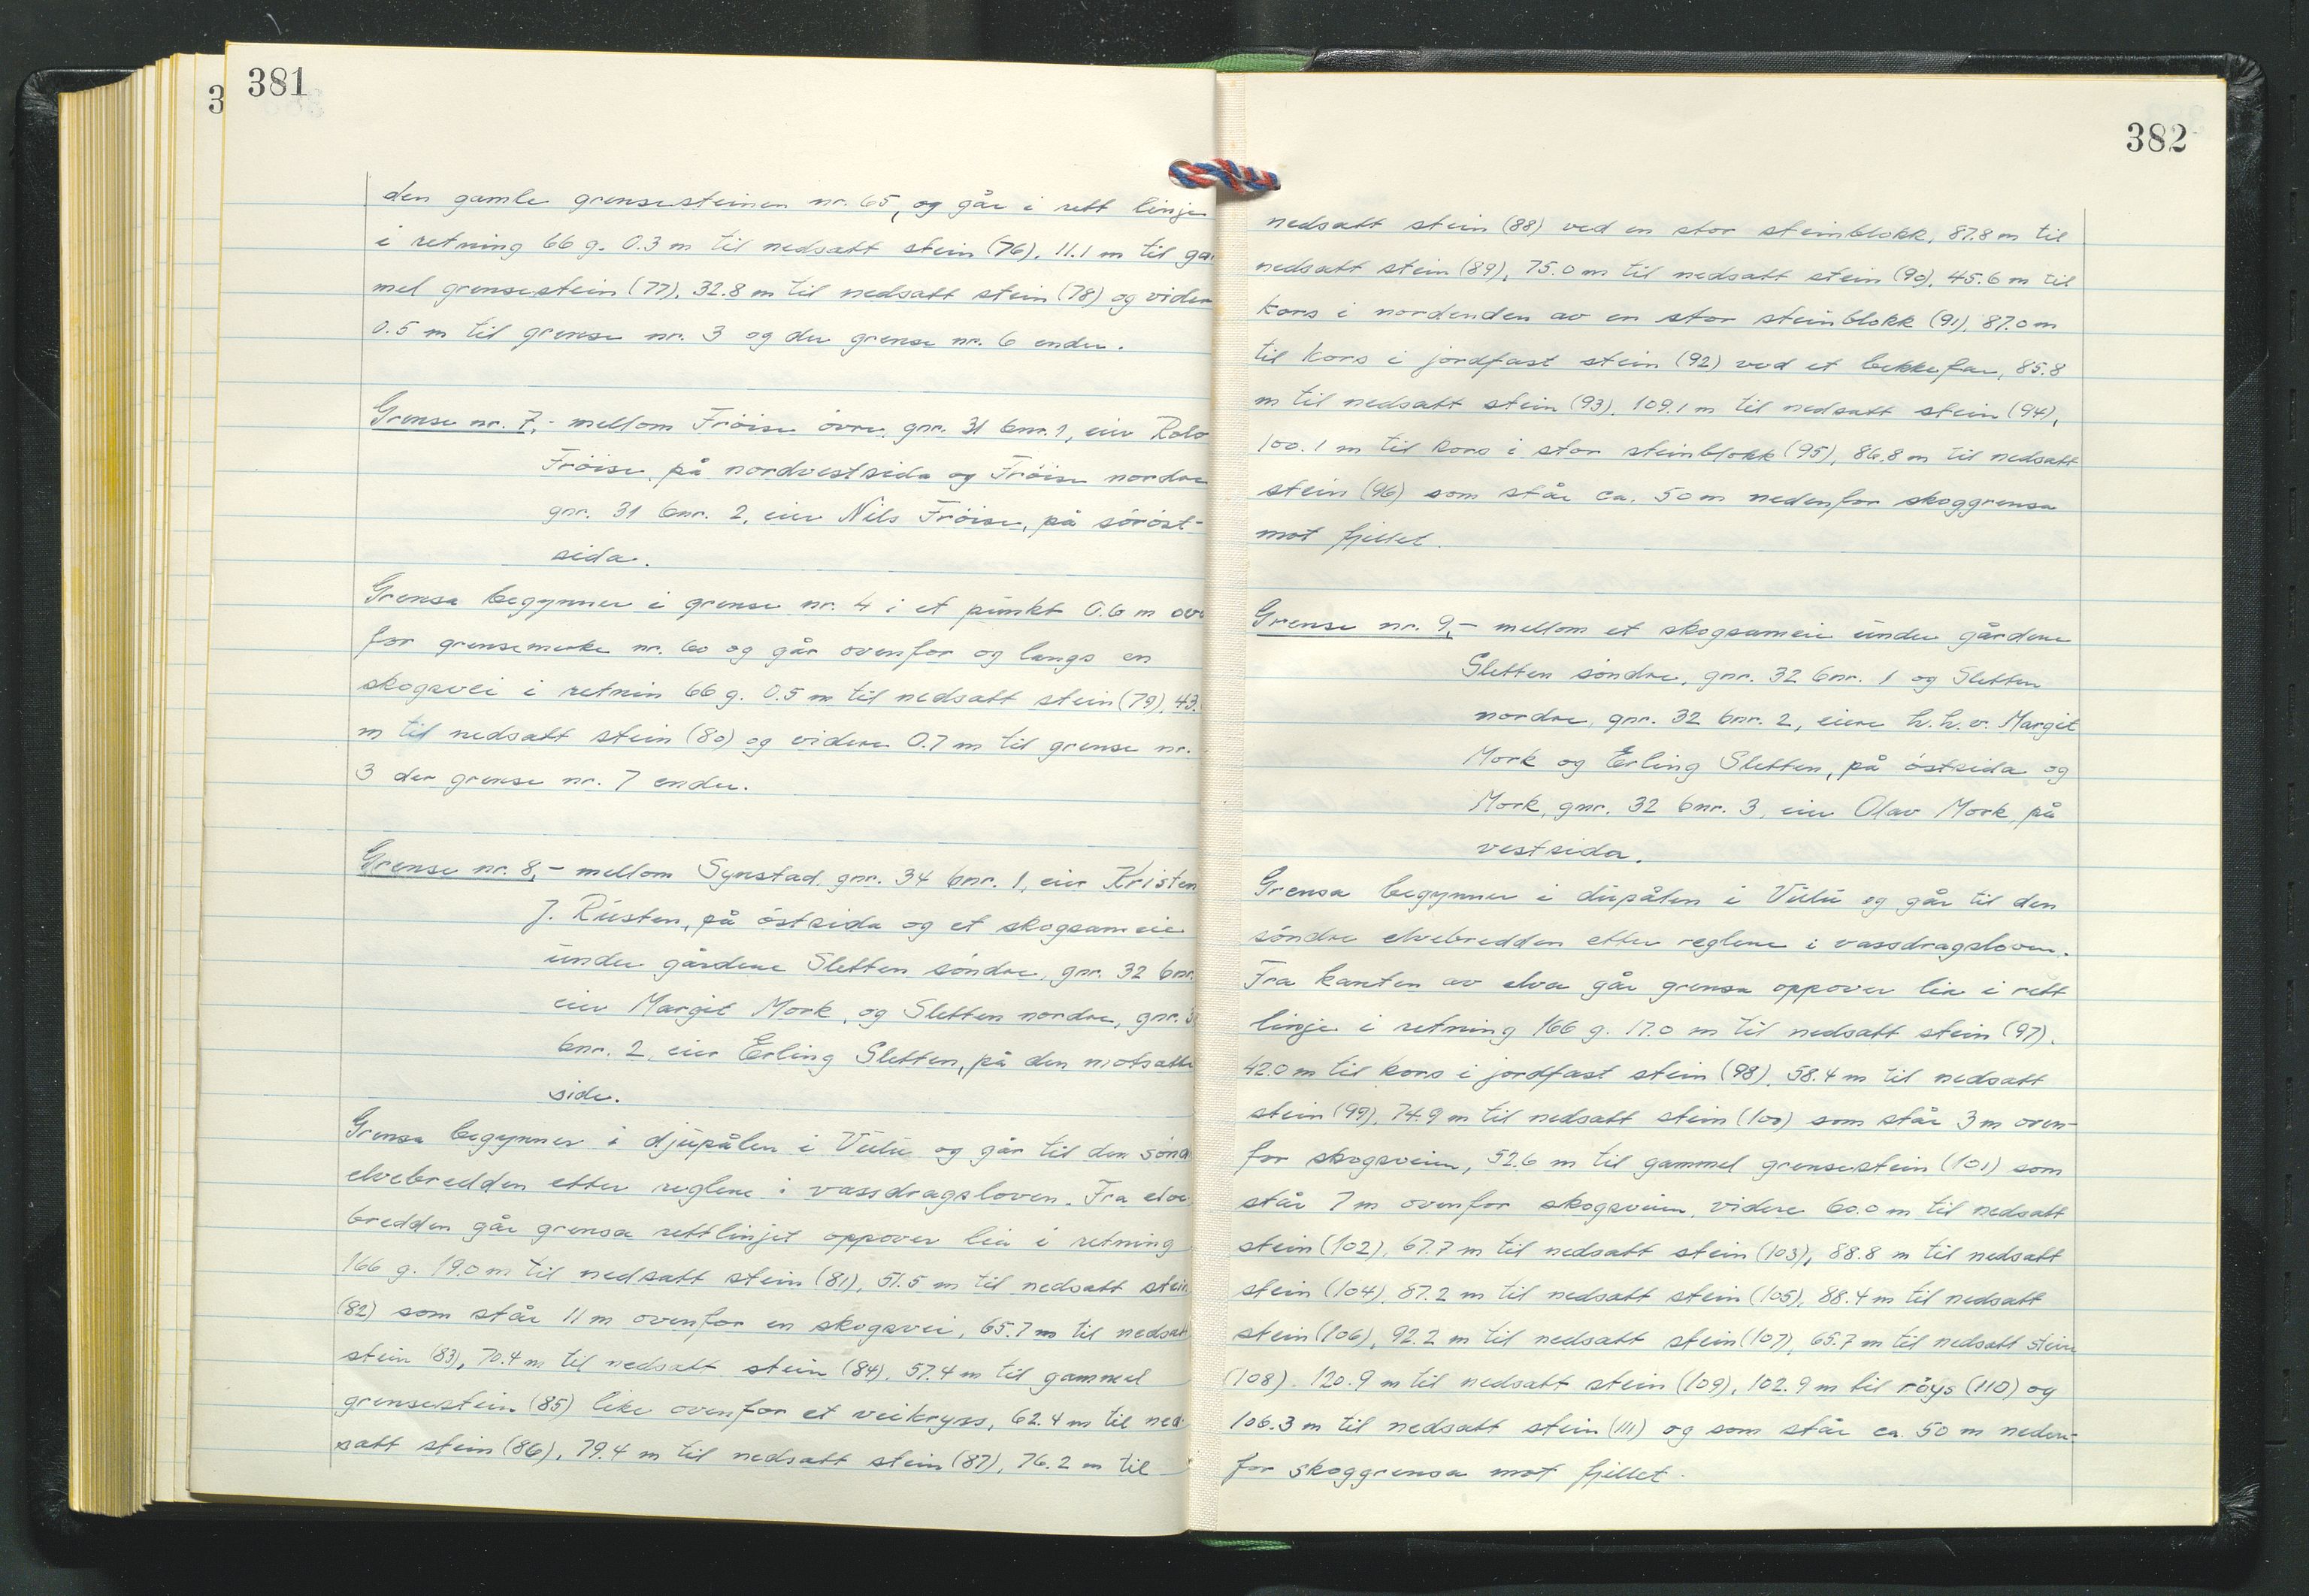 381
3
den gamle grensesteinen nr. 65, og går i rett linje
i retning 66 g. 0.3 m til nedsatt stein (76), 11.1 m til ga
mel grensestein (77), 32.8 m til nedsatt stein (78) og vider
0.5 m til grense nr. 3 og der grense nr. 6 ender.
Grense nr. 7,- mellom Fröise övre, gnr. 31 bnr. 1, eier Rolv
Fröise, på nordvestsida og Fröise nordre
gnr. 31 bnr. 2, eier Nils Fröise, på söröst-
sida.
Grensa begynner i grense nr. 4 i et punkt 0.6 m ov
for grensemerke nr. 60 og går ovenfor og langs en
skogsvei i retnin 66 g. 0.5 m til nedsatt stein (79), 43.
m til nedsatt stein (80) og videre 0.7 m til grense nr.
3 der grense nr. 7 ender.
Grense nr. 8,- mellom Synstad, gnr. 34 bnr. 1, eier Kristen
J. Rusten, på östsida og et skogsameie
under gårdene Sletten söndre, gnr. 32 bnr.
eier Margit Mork, og Sletten nordre, gnr. 3
bnr. 2, eier Erling Sletten, på den motsatte
side.
Grensa begynner i djupålen i Vulu og går til den sönd
elvebredden etter reglene i vassdragsloven. Fra elve
bredden går grensa rettlinjet oppover lia i retning
166 g. 19.0 m til nedsatt stein (81), 51.5 m til nedsatt stein
(82) som står 11 m ovenfor en skogsvei, 65.7 m til nedsatt
stein (83), 70.4 m til nedsatt stein (84), 57.4 m til gammel
grensestein (85) like ovenfor et veikryss, 62.4 m til ned-
satt stein (86), 79.4 m til nedsatt stein (87), 76.2 m til
382
nedsatt stein (88) ved en stor steinblokk, 87.8 m til
nedsatt stein (89), 75.0 m til nedsatt stein (90), 45.6 m til
kors i nordenden av en stor steinblokk (91), 87.0 m
til kors i jordfast stein (92) ved et bekkefar, 85.8
m til nedsatt stein (93), 109.1 m til nedsatt stein (94),
100.1 m til kors i stor steinblokk (95), 86.8 m til nedsatt
stein (96) som står ca. 50 m nedenfor skoggrensa
mot fjellet.
Grense nr. 9,- mellom et skogsameie under gårdene
Sletten söndre, gnr. 32 bnr. 1 og Sletten
nordre, gnr. 32 bnr. 2, eiere h.h.v. Margit
Mork og Erling Sletten, på östsida og
Mork, gnr. 32 bnr. 3, eier Olav Mork, på
vestsida.
Grensa begynner i dupålen i Vulu og går til den
söndre elvebredden etter reglene i vassdragsloven.
Fra kanten av elva går grensa oppover lia i rett
linje i retning 166 g. 17.0 m til nedsatt stein (97),
42.0 m til kors i jordfast stein (98), 58.4 m til nedsatt
stein (99), 74.9 m til nedsatt stein (100) som står 3 m oven-
for skogsveien, 52.6 m til gammel grensestein (101) som
står 7 m ovenfor skogsveien, videre 60.0 m til nedsatt
stein (102), 67.7 m til nedsatt stein (103), 88.8 m til nedsatt
stein (104), 87.2 m til nedsatt stein (105), 88.4 m til nedsatt
stein (106), 92.2 m til nedsatt stein (107), 65.7 m til nedsatt stein
(108), 120.9 m til nedsatt stein (109), 102.9 m til röys (110) og
106.3 m til nedsatt stein (111) og som står ca. 50 m neden-
for skoggrensa mot fjellet.